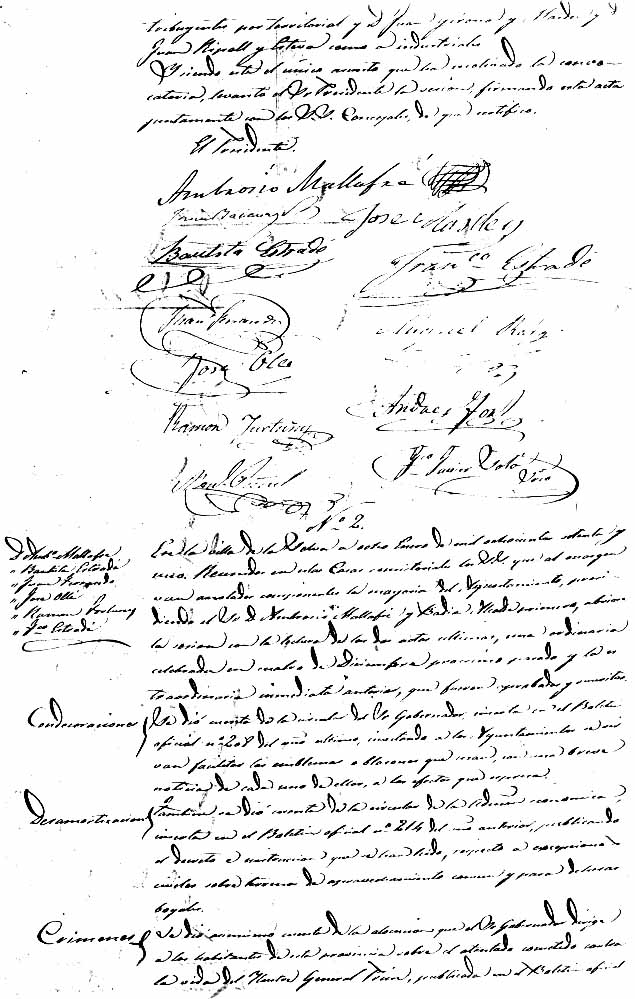 tribuyentes por territorial y D. Juan Girona y
Juan Ripoll y Esteva como a industriales
Y siendo este el único asunto que ha motivado la convo-
catoria, levantó el Sr. Presidente la sesion, firmando esta acta
juntamente con los S.S. Concejales, de que certifico.
El Presidente.
Ambrosio Mallafré
Jose
Bautista Estradé
Franco Estrade
Juan Fernando
Manuel Roig
Jose Olle
Andres
Ramon Fortuny
Javier
Nº 2.
En la villa de la Selva a ocho Enero de mil ochocientos setenta y
uno. Reunidos en estas Casas consistoriales los S.S. que al margen
van anotados componentes la mayoria del Ayuntamiento, presi-
diendo el Sr. D. Ambrosio Mallafré y Badia, Alcalde primero, abriose
la sesion con la lectura de las dos actas ultimas, una ordinaria
celebrada en cuatro de Diciembre proximo pasado y la es-
traordinaria inmediata anterior, que fueron aprobadas y suscritas.
D. Ambº Mallafre
" Bautista Estradé
" Juan Fernando
" Jose Ollé
" Ramon Fortuny
" Fco Estradé
Condecoraciones
Se dió cuenta de la circular del Sr. Gobernador, inserta en el Boletin
oficial nº 208 del año ultimo, invitando a los Ayuntamientos a
van facilitar los emblemas o blasones que usan, con una breve
noticia de cada uno de ellos, a los efectos que espresa.
Desamortizacion
Tambien se dió cuenta de la circular de la Admon economica,
inserta en el Boletin oficial nº 214 del año anterior, publicando
el decreto
civiles sobre terrenos de aprovechamiento comun y para dehesas
boyales.
Crimenes
Se dió asimismo cuenta de la alocucion que el Sr. Gobernador dirige
a los habitantes de esta provincia sobre el atentado cometido contra
la vida del Ilustre General Prim, publicada en el Boletin oficial